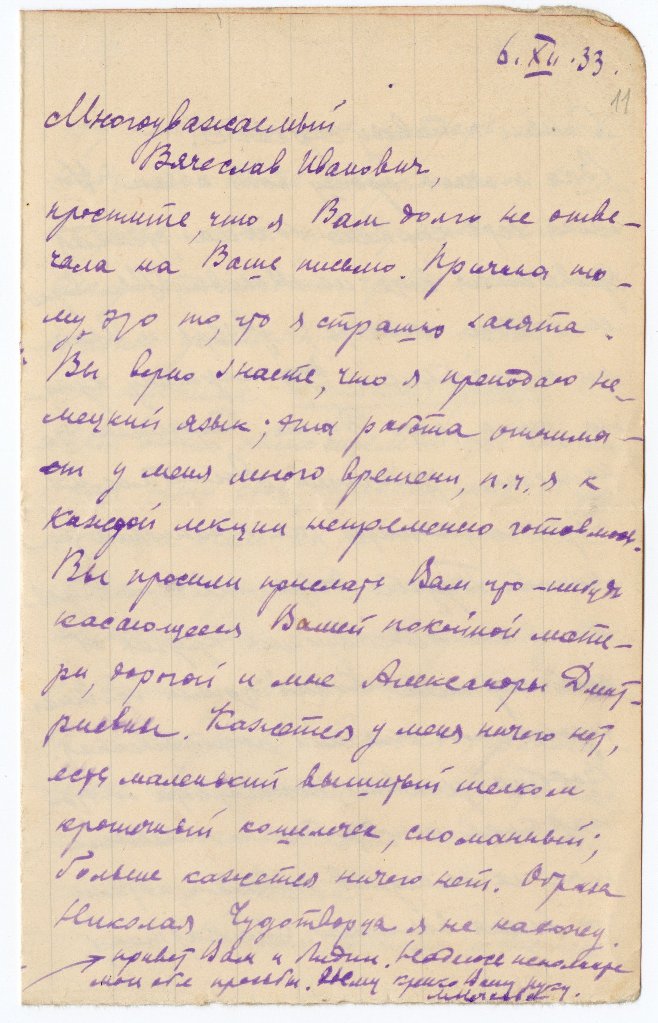 6.XII.33.
11
Многоуважаемый
Вячеслав Иванович,
простите, что я Вам долго не отве-
чала на Ваше письмо. Причина то-
му, это то, что я страшно занята.
Вы верно знаете, что я преподаю не-
мецкий язык; эта работа отнима-
ет у меня много времени, п.ч. я к
каждой лекции непременно готовлюсь.
Вы просили прислать Вам что-нибудь
касающееся Вашей покойной мате-
ри, дорогой и мне Александры Дмит-
риевны. Кажется у меня ничего нет,
есть маленький вышитый шелком
крошечный кошелечек, сломанный;
больше кажется ничего нет. Образа
Николая Чудотворца я не нахожу.
привет Вам и Лидии. Надеюсь исполните
мои обе просьбы. Жму крепко Вашу руку.